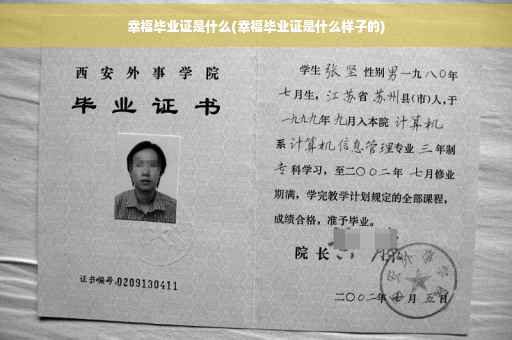 幸福毕业证是什么(幸福毕业证是什么样子的)
西安外事学院
毕业证书
证书编号:0209130411
学生 张坚 性别男一九八〇年
七月生, 江苏省 苏州县(市)人,于
一九九九年 九月入本院 计算机
系计算机信息管理专业 三 年制
专 科学习, 至二〇〇二年 七月修业
期满, 学完教学计划规定的全部课程,
成绩合格, 准予毕业。
院 长
二〇〇二年 月 五日